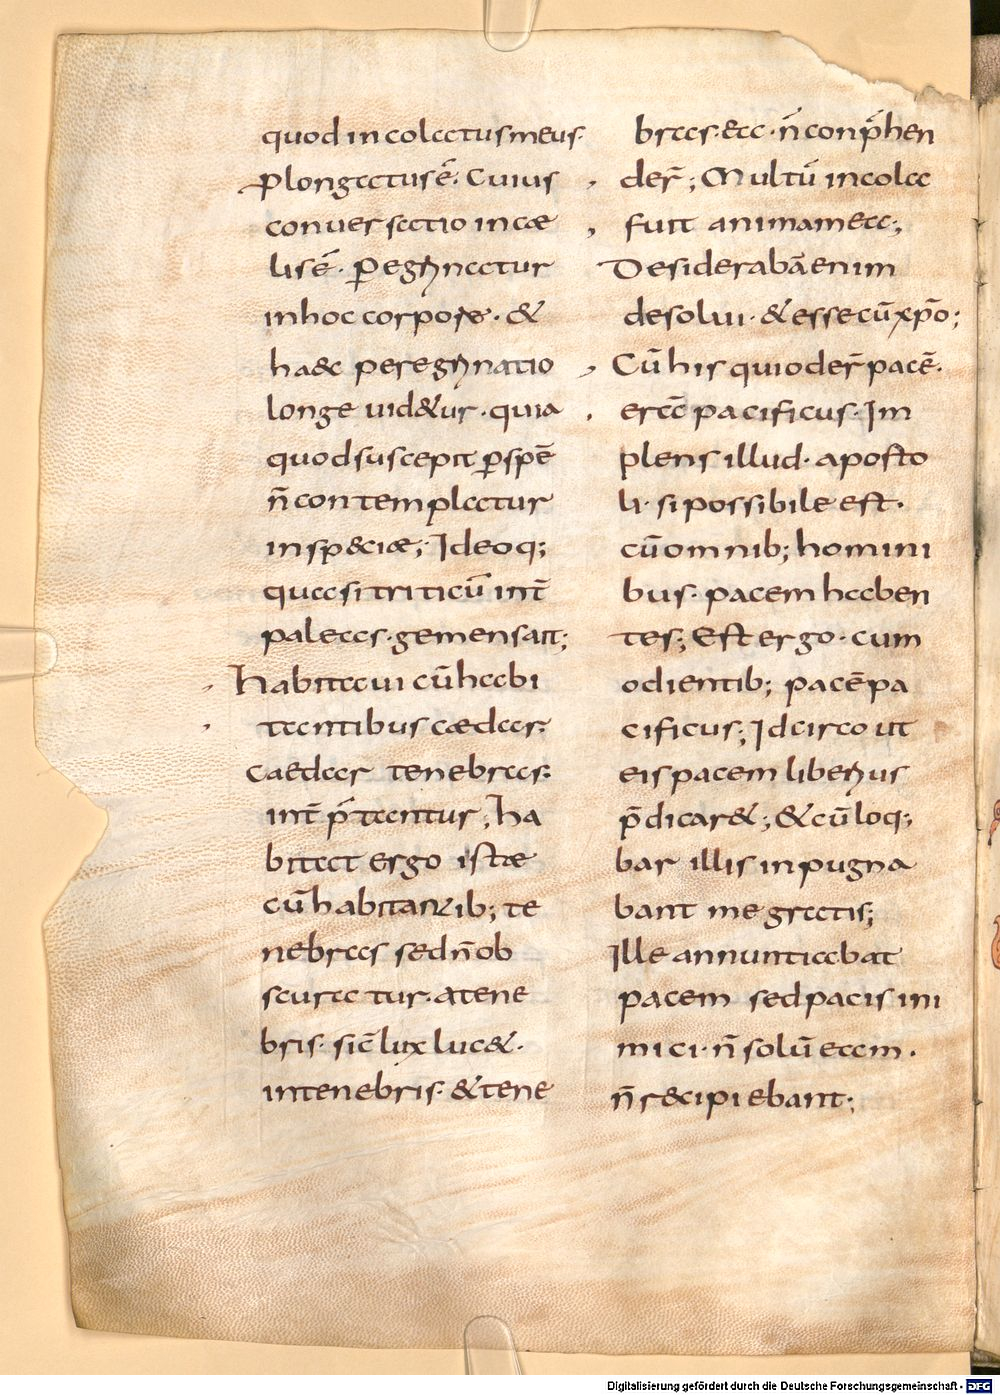 quod incolatus meus·
ꝓlongatus ē· Cuius
conuersatio in cæ
lis ē· Peregrinatur
in hoc corpore· &
haec peregrinatio
longe uid&ur· quia
quod suscepit ꝑ spē
n̄ contemplatur
in sp&ciæ; Ideoq;
quasi triticū int̄
paleas· gemens ait;
Habitaui cū habi
tantibus cædas·
caedas tenebras·
int̄ p̄tantur; Ha
bitat ergo istæ
cū habitantib; te
nebras sed n̄ ob
scuratur· a tene
bris· sic̄ lux luc&·
in tenebris· & tene
bras· ea· n̄ conp̄hen
der̄; Multū incola
fuit anima mea;
Desiderabā enim
desolui· & esse cū xp̄o;
Cū his qui oder̄ pacē·
erā pacificus· Im
plens illud· aposto
li· si possibile est·
cū omnib; homini
bus· pacem haben
tes; Est ergo· cum
odientib; pacē pa
cificus; Idcirco ut
eis pacem liberius
p̄dicar&; & cū loq;
bar illis inpugna
bant me gratis;
Ille annuntiabat
pacem sed pacis ini
mici· n̄ solū eam·
n̄ r&cipiebant;
Digitalisierung gefördert durch die Deutsche Forschungsgemeinschaft - DFG